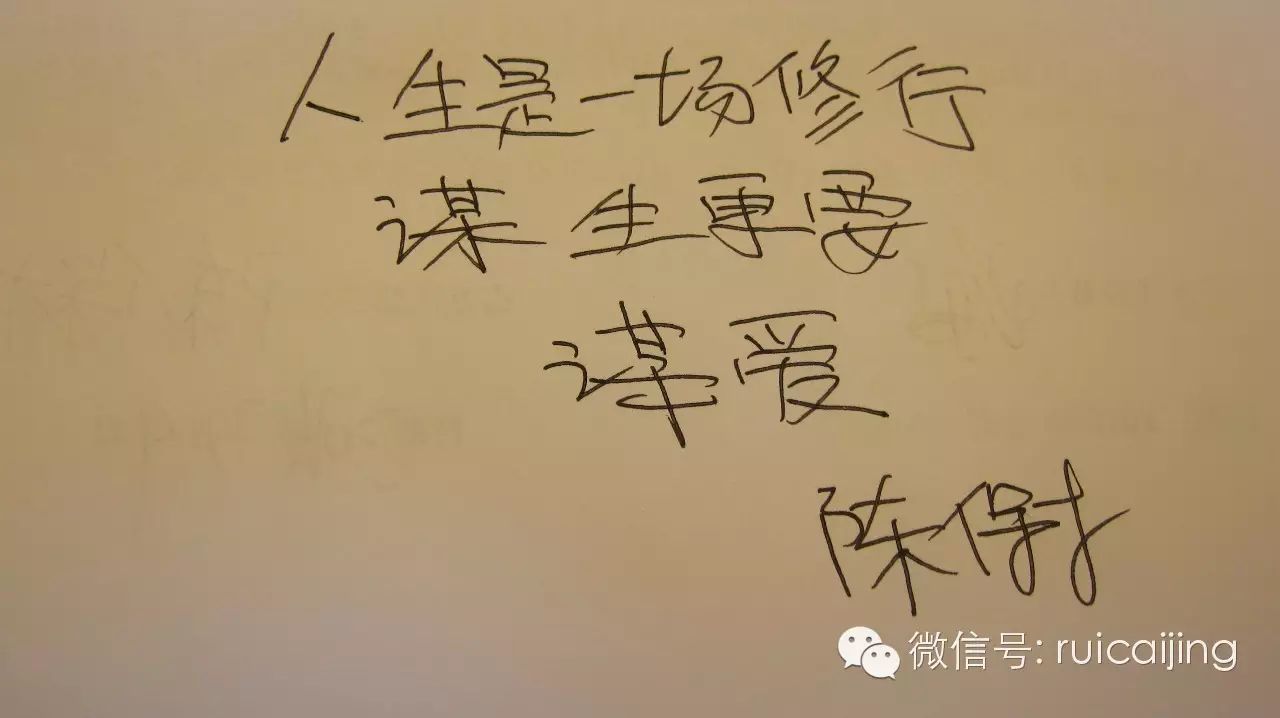 人生是一场修行
谋生更要
谋爱
陈保才
微信号: ruicaijing